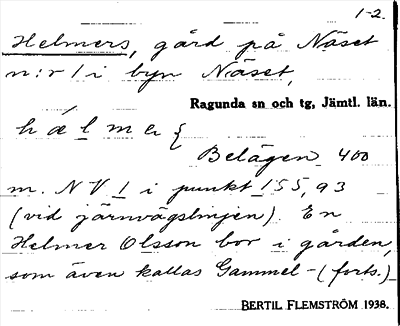 1-2.
Helmers, gård på Näset
n:r 1 i byn Näset,
Ragunda sn och tg, Jämtl. län.
Belägen 400
m. NV 1 i punkt 155,93
(vid järnvägslinjen). En
Helmer Olsson bor i gården,
som även kallas Gammel-(forts.)
BERTIL FLEMSTRÖM 1938.